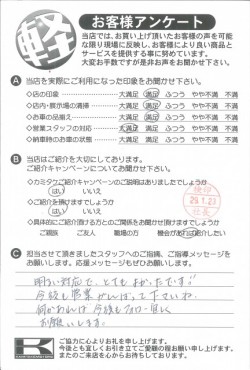 軽
お客様アンケート
当店では、お買い上げ頂いたお客様の声を可能
な限り現場に反映し、お客様により良い商品と
サービスを提供する事に努めています。
大変お手数ですが是非お声をお聞かせ下さい。
A 当店を実際にご利用になった印象をお聞かせ下さい。
◇店の印象 大満足 満足 ふつう やや不満 不満
◇店内・展示場の清掃 大満足 満足 ふつう やや不満 不満
◇お車の品揃え 大満足 満足 ふつう やや不満 不満
◇営業スタッフの対応 大満足 満足 ふつう やや不満 不満
◇納車時のお車の状態 大満足 満足 ふつう やや不満 不満
B 当店はご紹介を大切にしております。
ご紹介キャンペーンについてお聞かせ下さい。
◇カミタケご紹介キャンペーンのご説明はありましたでしょうか
はい いいえ
◇ご紹介を頂けますでしょうか
はい いいえ
◇具体的にご紹介頂ける方とのご関係をお聞かせ頂けますでしょうか
ご親戚 ご友人 職場の方 機会があれば紹介したい
29.1.23
C 担当させて頂きましたスタッフへのご指摘、ご指導メッセージを
お願いします。応援メッセージもぜひお願いします。
明るい対応で、とてもよかったです!!
今後も営業がんばって下さいね。
何かあれば今後もフォロー宜しく
お願いします。
K
ご協力に心よりお礼を申し上げます。
今後とも宜しくお引き立てご愛顧の程お願い申し上げます。
またのご来店を心からお待ちしております。